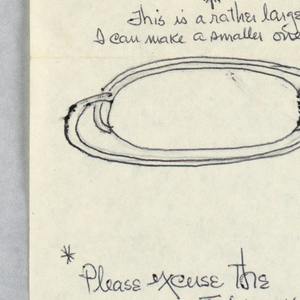 This is a rather large
I can make a smaller one
*
Please excuse the